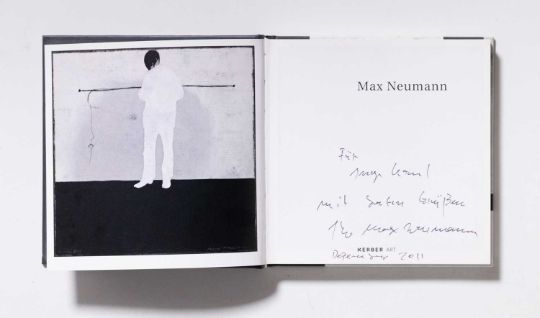 Max Neumann
Für
mit guten Grüßen
Ihr Max Neumann
KERBER ART
Dezember 2011